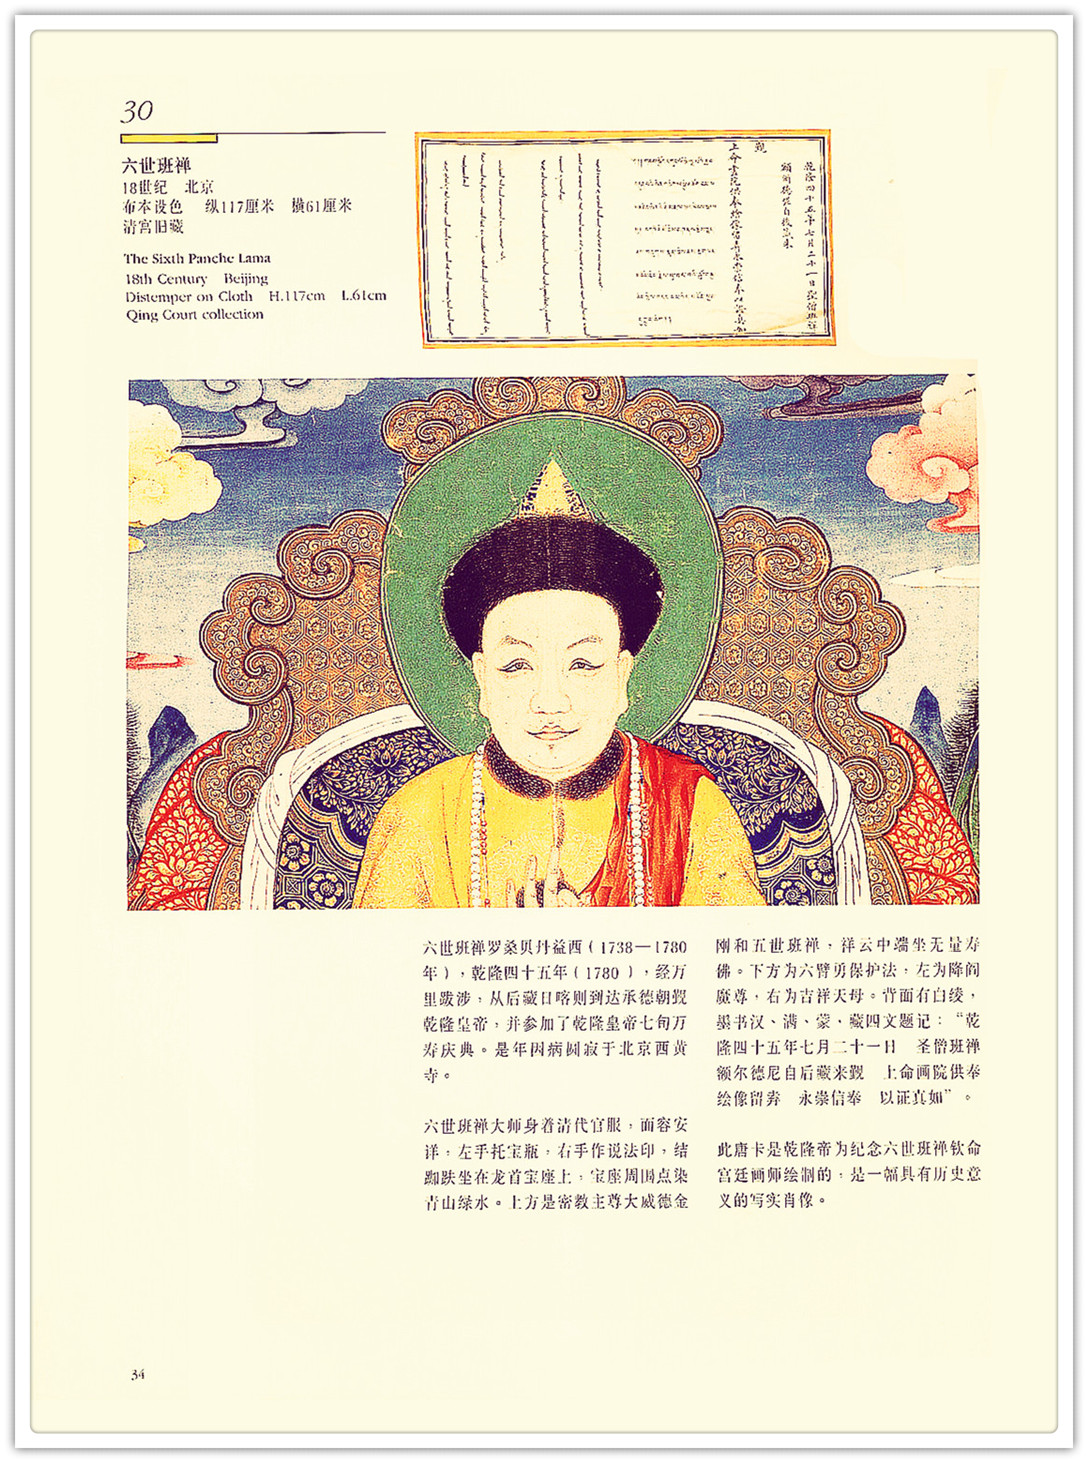 30
六世班禅
18世纪 北京
布本设色 纵117厘米 横61厘米
清宫旧藏
The Sixth Panche Lama
18th Century Beijing
Distemper on Cloth H.117cm L.61cm
Qing Court collection
乾隆四十五年七月二十一日 圣僧班禅
额尔德尼自后藏来
觐
上命画院供奉绘像留弆永崇信奉以证真如
六世班禅罗桑贝丹益西（1738—1780
年），乾隆四十五年（1780），经万
里跋涉，从后藏日喀则到达承德朝觐
乾隆皇帝，并参加了乾隆皇帝七旬万
寿庆典。是年因病圆寂于北京西黄
寺。
六世班禅大师身着清代官服，面容安
洋，左手托宝瓶，右手作说法印，结
跏趺坐在龙首宝座上，宝座周围点染
青山绿水。上方是密教主尊大威德金
刚和五世班禅，祥云中端坐无量寿
佛。下方为六臂勇保护法，左为降阎
魔尊，右为吉祥天母。背面有白绫，
墨书汉、满、蒙、藏四文题记：“乾
隆四十五年七月二十一日 圣僧班禅
额尔德尼自后藏来觐 上命画院供奉
绘像留弆 永崇信奉 以证真如”。
此唐卡是乾隆帝为纪念六世班禅钦命
宫廷画师绘制的，是一幅具有历史意
义的写实肖像。
34